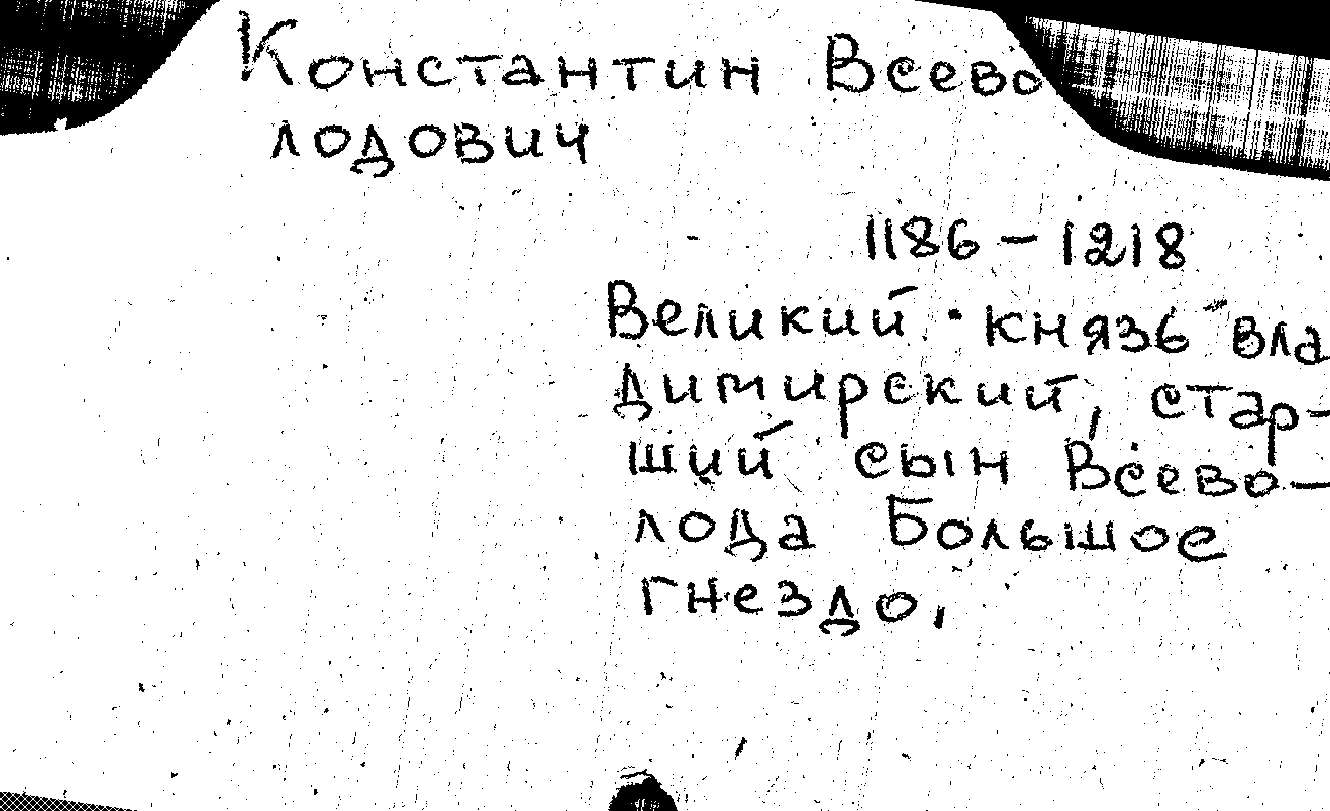 Константин Всево
лодович
1186 – 1218
Великий князь Вла
димирский, стар-
ший сын Всево-
лода Большое
гнездо,